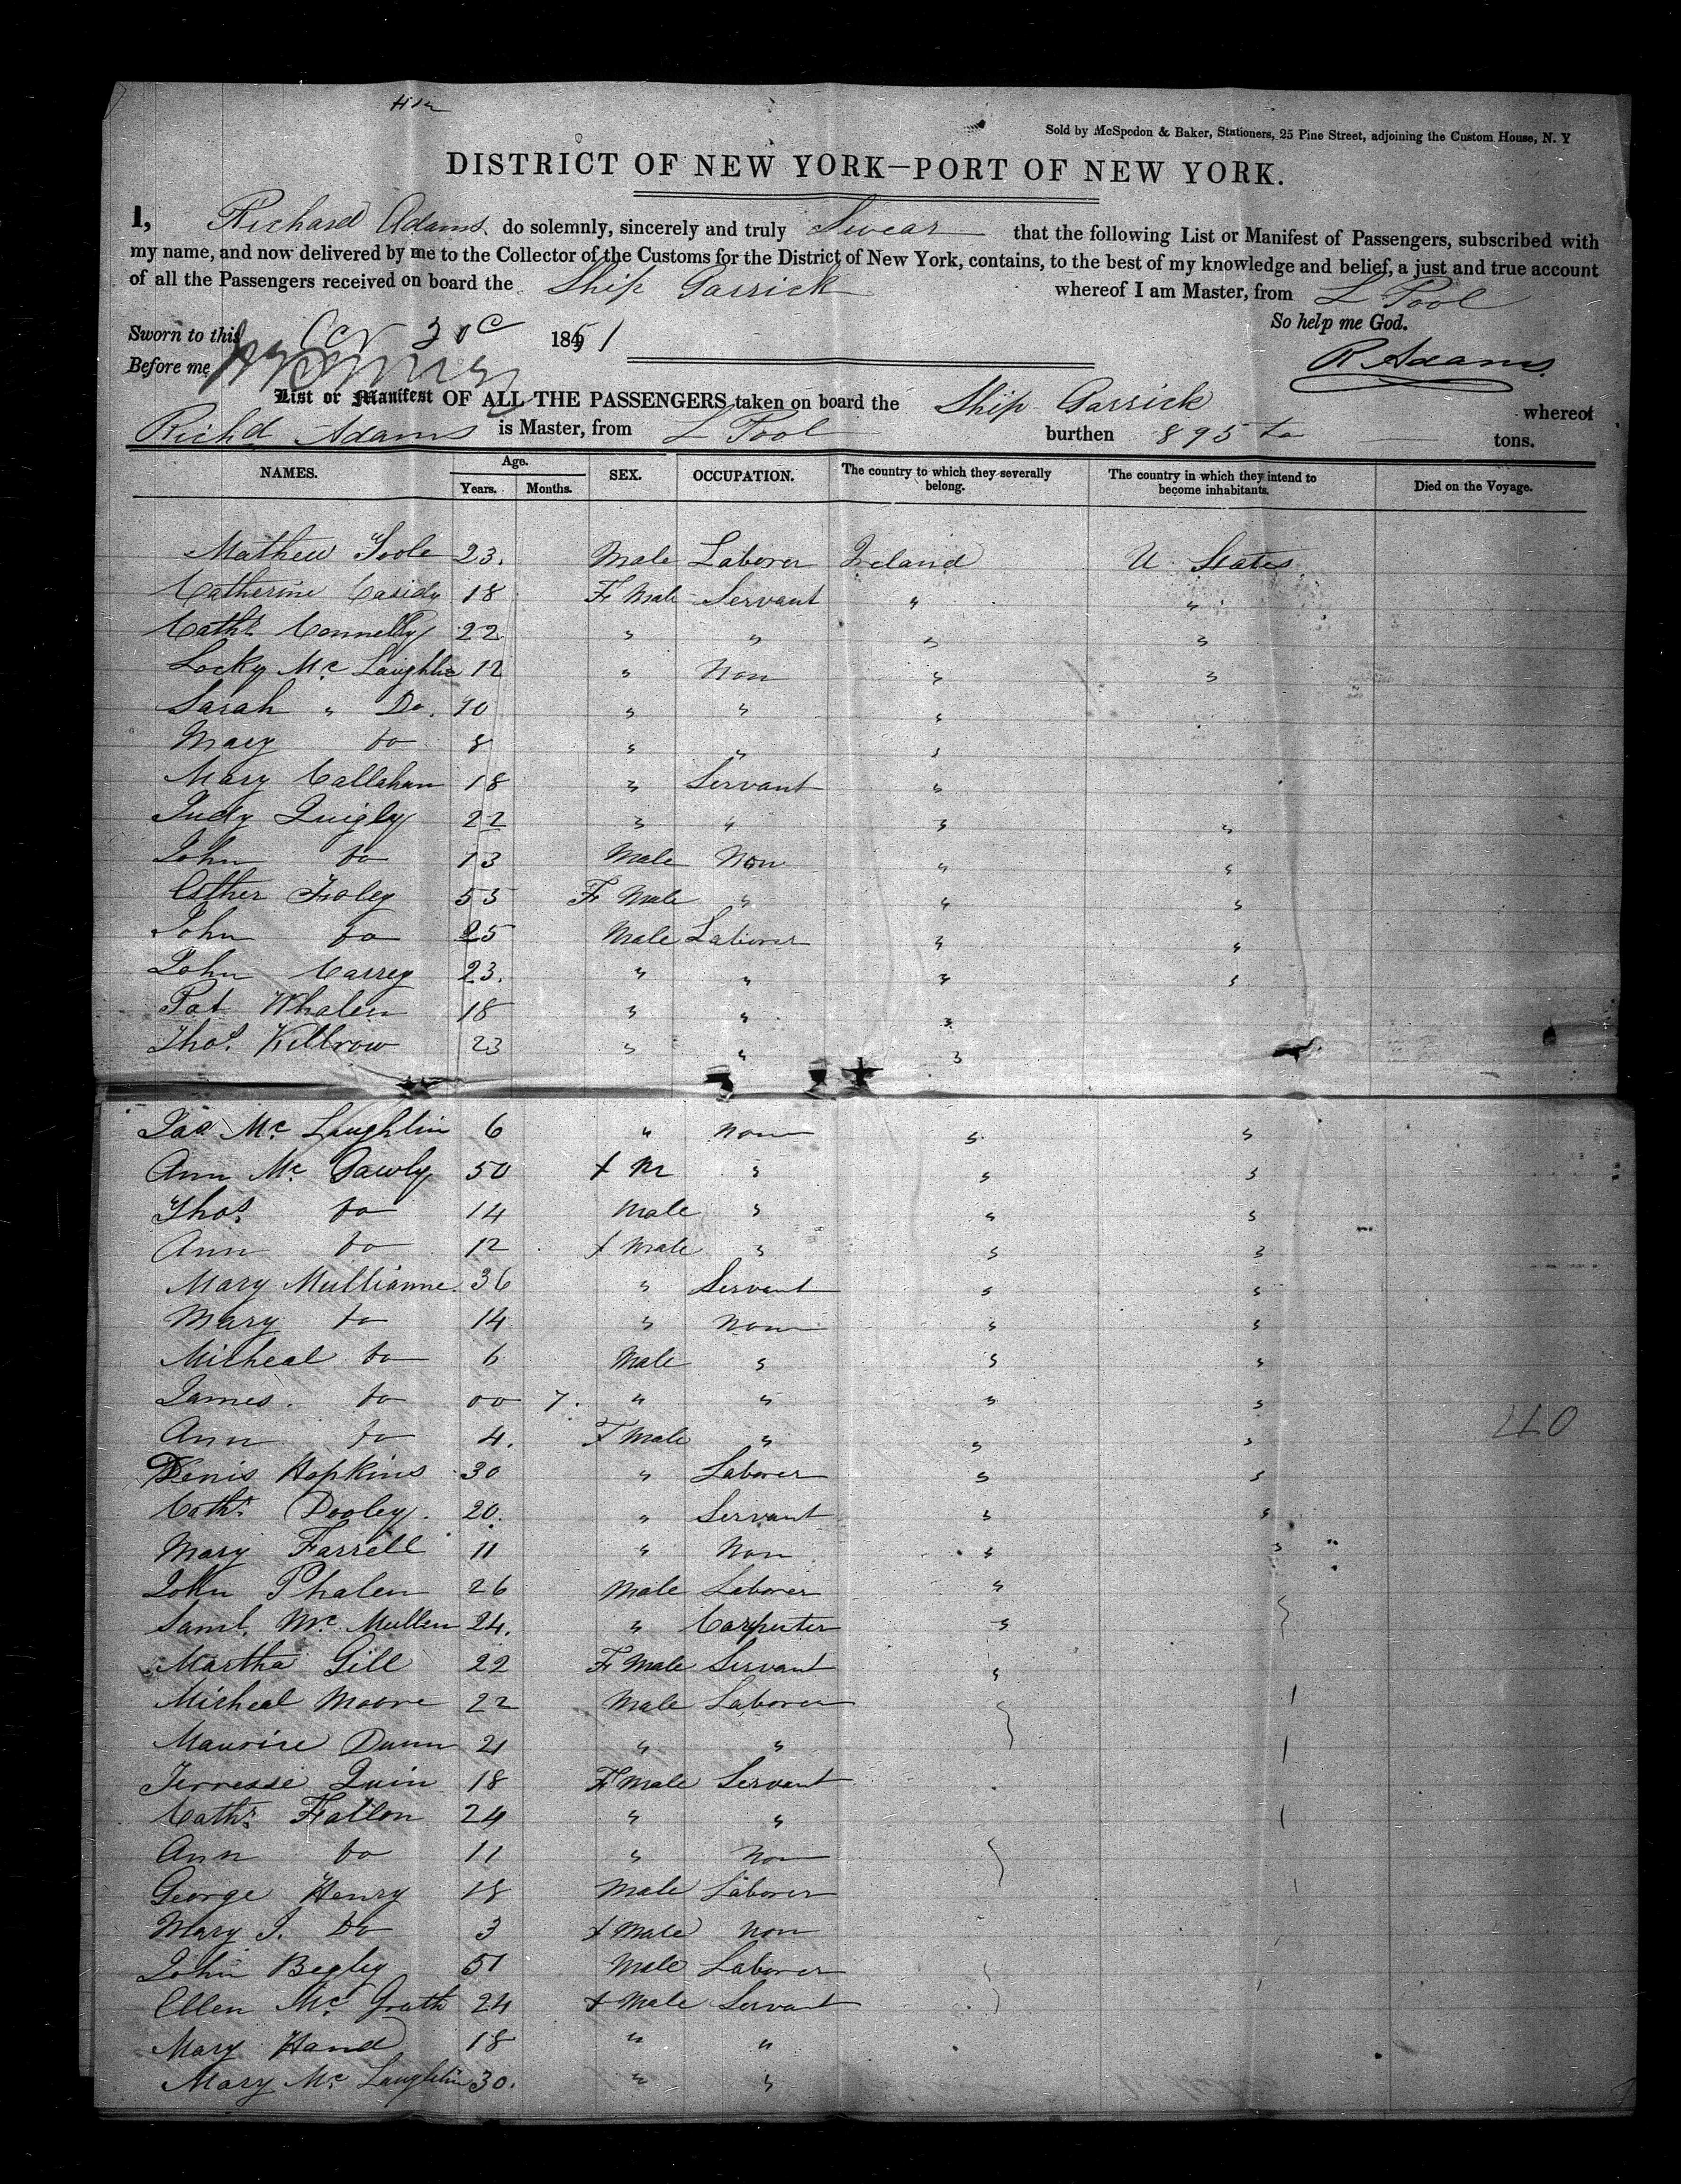 Sold by McSpedon & Baker, Stationers, 25 Pine Street, adjoining the Custom House, N. Y
DISTRICT OF NEW YORK—PORT OF NEW YORK.
I, Richard Adams do solemnly, sincerely and truly Swear that the following List or Manifest of Passengers, subscribed with
my name, and now delivered by me to the Collector of the Customs for the District of New York, contains, to the best of my knowledge and belief, a just and true account
of all the Passengers received on board the Ship Garrick whereof I am Master, from L Pool
So help me God.
Sworn to this 1851
R Adams.
Before me
List or Manifest OF ALL THE PASSENGERS taken on board the Ship Garrick whereof
Richd Adams is Master, from L Pool burthen 895 tons.
NAMES. Age. Years. Months. SEX. OCCUPATION. The country to which they severally belong. The country in which they intend to become inhabitants. Died on the Voyage.
Mathew Toole 23. Male Laborer Ireland U States
Catherine Casidy 18 F Male Servant " "
Cathe Connelly 22 " " " "
Locky Mc Laughlin 12 " Non " "
Sarah " Do. 10 " " "
Mary do 8 " " "
Mary Callahan 18 " Servant "
Judy Quigly 22 " " " "
John do 13 Male Non " "
Esther Foley 55 F Male " " "
John do 25 Male Laborer " "
John Carrey 23. " " " "
Pat Whalen 18 " " "
Thos. Killrow 23 " " "
Jas Mc Laughlin 6 " Non " "
Ann Mc Gawly 50 f M " " "
Thos. do 14 Male " " "
Ann do 12 f Male " " "
Mary Mullianne 36 " Servant " "
Mary do 14 " Non " "
Micheal do 6 Male " " "
James. do 00 7. " " " "
Ann do 4. F Male " " "
210
Denis Hopkins 30 " Laborer " "
Cathe Dooley. 20. " Servant " "
Mary Farrell 11 " Non " "
John Phalen 26 Male Laborer "
Saml. Mc Mullen 24. " Carpenter "
Martha Gill 22 F Male Servant "
Micheal Moore 22 Male Laborer
Maurice Dunn 21 " "
Terresse Quin 18 F Male Servant
Cathe Fallon 24 " "
Ann do 11 " Non
George Henry 18 Male Laborer
Mary J. Do 3 f Male Non
John Begley 51 Male Laborer
Ellen Mc Grath 24 f Male Servant
Mary Hand 18 " "
Mary Mc Laughlin 30. " "